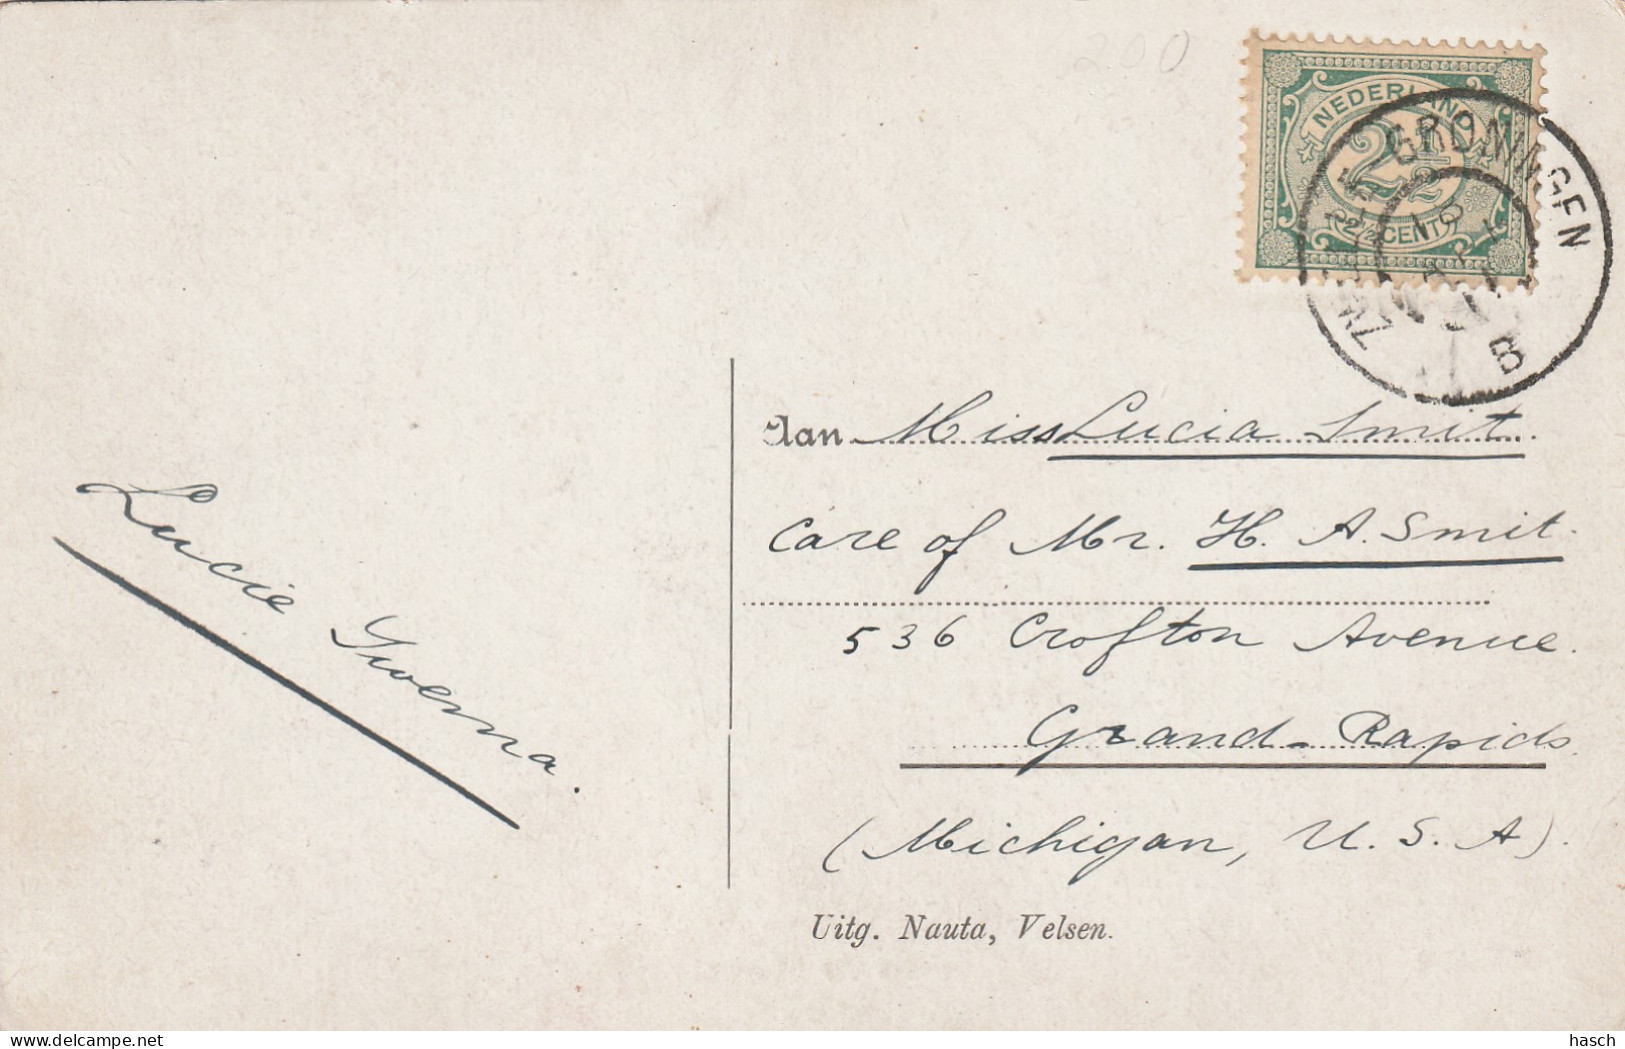 200
NEDERLAND
2½
2½ CENT
GRONINGEN
B
Aan Miss Lucia Smit.
Care of Mr. H. A. Smit.
536 Crofton Avenue.
Grand-Rapids.
(Michigan, U. S. A).
Lucie
Uitg. Nauta, Velsen.
hasch